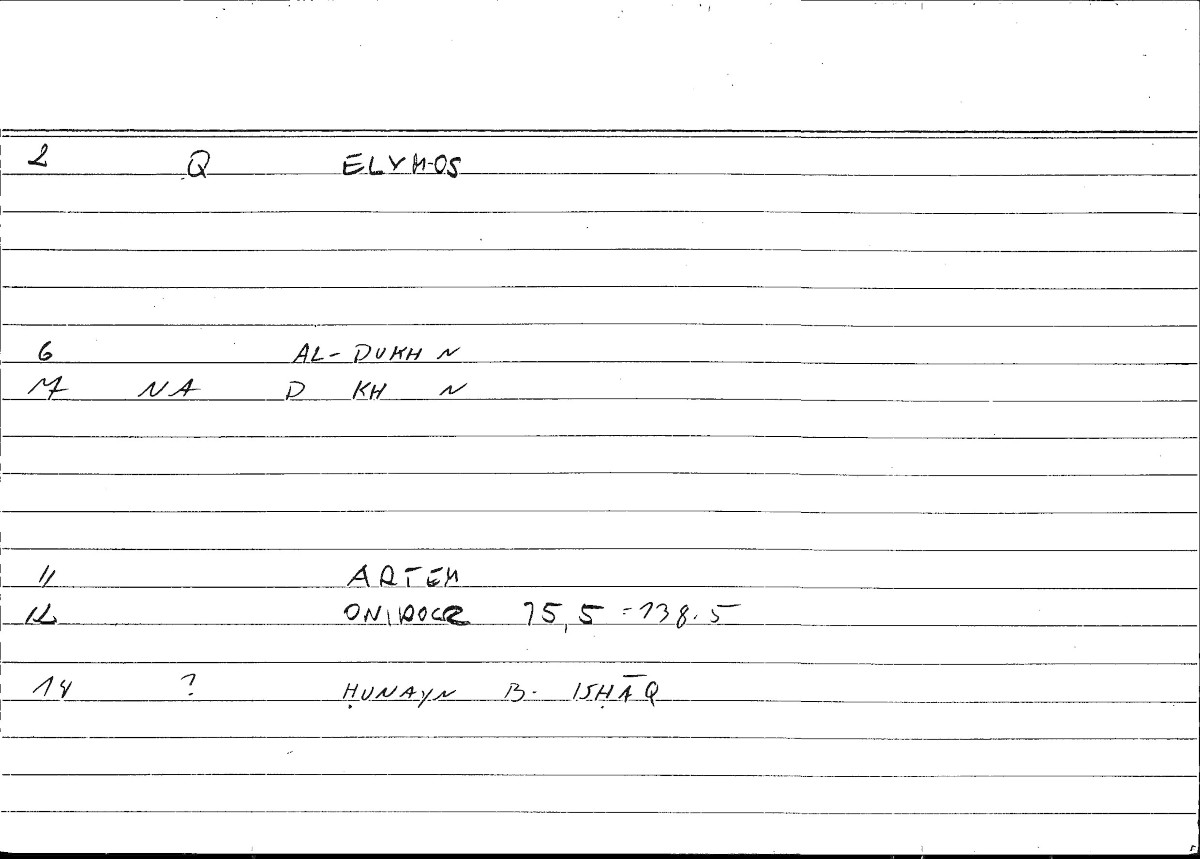 2 Q ELYMOS
6 AL-DUKH N
M NA D KH N
11 ARTEM
12 75,5 = 138.5
14 ? ḤUNAYN B. ISḤĀQ